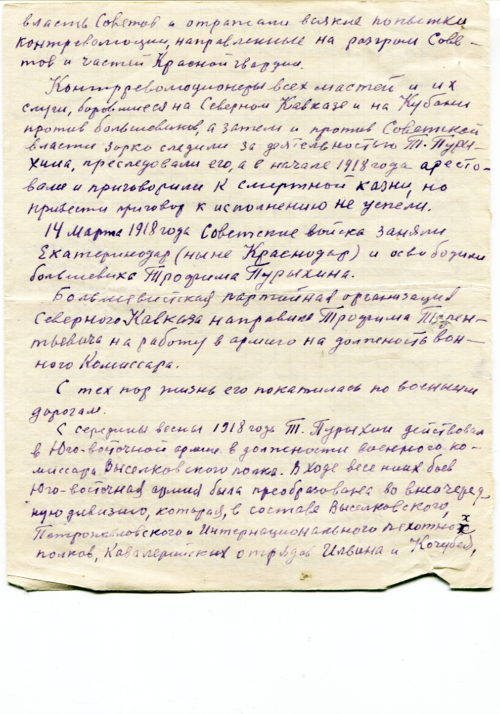 власть Советов и отражали всякие попытки
контрреволюции, направленные на разгром Сове-
тов и частей Красной гвардии.
Контрреволюционеры всех мастей и их
слуги, боровшиеся на Северном Кавказе и на Кубани
против большевиков, а затем и против Советской
власти зорко следили за деятельностью Т. Пуры-
хина, преследовали его, а в начале 1918 года аресто-
вали и приговорили к смертной казни, но
привести приговор к исполнению не успели.
14 марта 1918 года Советские войска заняли
Екатеринодар (ныне Краснодар) и освободили
большевика Трофима Пурыхина.
Большевистская партийная организация
Северного Кавказа направила Трофима Терен-
тьевича на работу в армию на должность вон-
ного Комиссара.
С тех пор жизнь его покатилась по военным
дорогам.
С середины весны 1918 года Т. Пурыхин действовал
в Юго-восточной армии в должности военного ко-
миссара Выселковского полка. В ходе весенних боев
Юго-восточная армия была преобразована во внеочеред-
ную дивизию, которая, в составе Выселковского,
Петропавловского и Интернационального пехотных
полков, Кавалерийских отрядов Ильина и Кочубея,